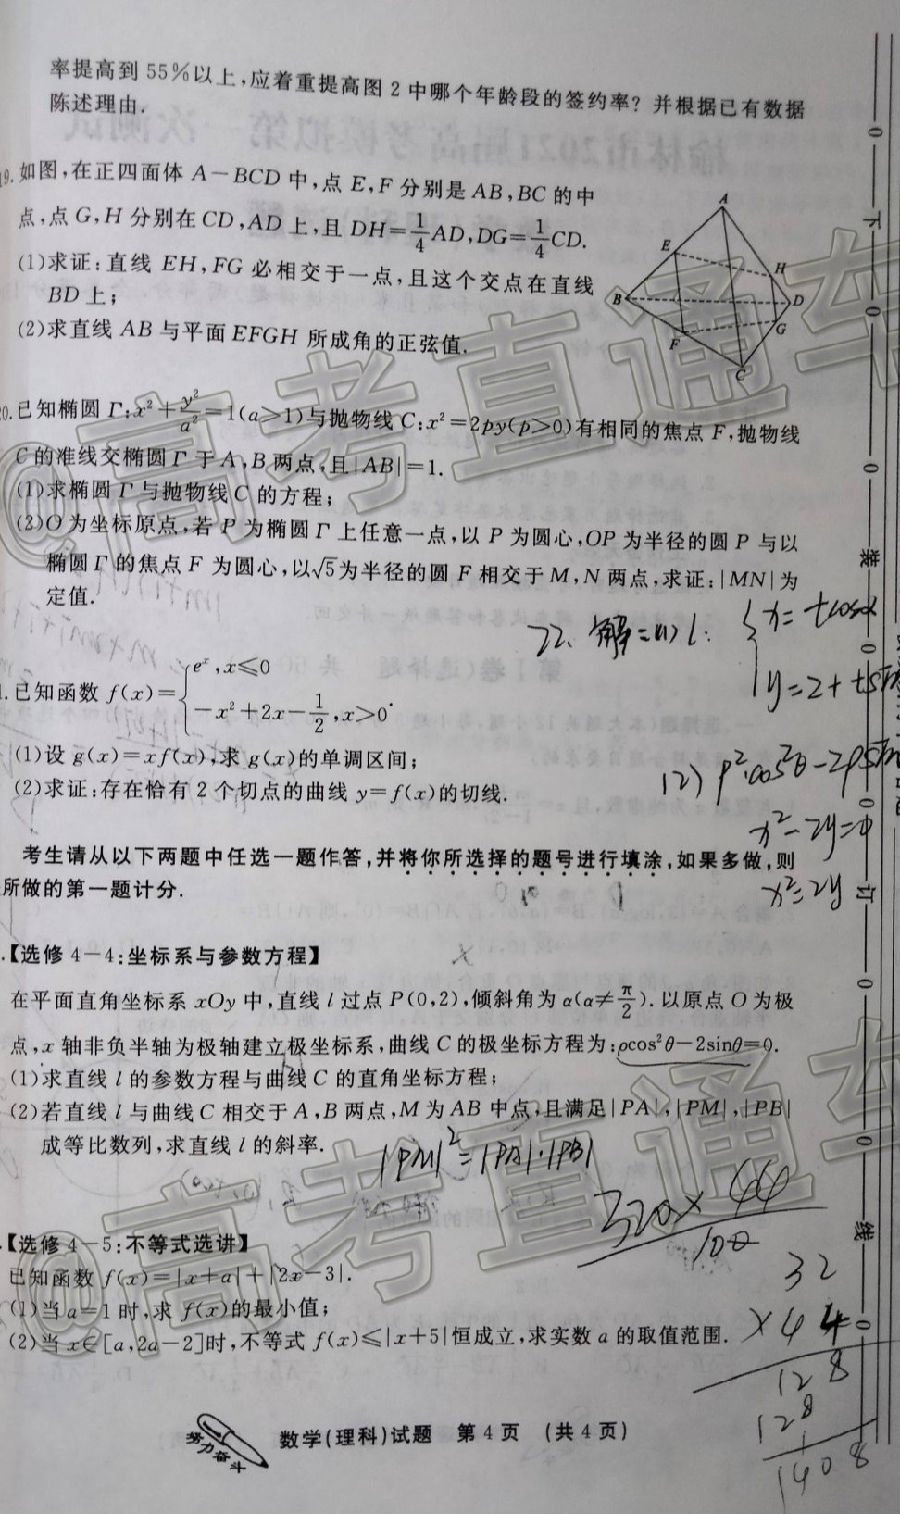 率提高到 55%以上,应着重提高图 2 中哪个年龄段的签约率? 并根据已有数据
陈述理由.
19.如图,在正四面体 A-BCD 中,点 E,F 分别是 AB,BC 的中
点,点 G,H 分别在 CD,AD 上,且 DH=1/4AD,DG=1/4CD.
(1)求证:直线 EH,FG 必相交于一点,且这个交点在直线
BD 上;
(2)求直线 AB 与平面 EFGH 所成角的正弦值.
A
E
H
B
D
G
F
C
20.已知椭圆 Γ:x²+y²/a²=1(a>1)与抛物线 C:x²=2py(p>0)有相同的焦点 F,抛物线
C 的准线交椭圆 Γ 于 A,B 两点,且|AB|=1.
(1)求椭圆 Γ 与抛物线 C 的方程;
(2)O 为坐标原点,若 P 为椭圆 Γ 上任意一点,以 P 为圆心,OP 为半径的圆 P 与以
椭圆 Γ 的焦点 F 为圆心,以√5为半径的圆 F 相交于 M,N 两点,求证:|MN|为
定值.
22. 解:(1) l: {x=tcosα
y=2+tsin
1.已知函数 f(x)={e^x,x≤0
-x²+2x-1/2,x>0.
(1)设 g(x)=xf(x),求 g(x)的单调区间;
(2)求证:存在恰有 2 个切点的曲线 y=f(x)的切线.
(2) ρ²cos²θ-2ρsin
x²-2y=0
x²=2y
考生请从以下两题中任选一题作答,并将你所选择的题号进行填涂,如果多做,则
所做的第一题计分.
.【选修 4-4:坐标系与参数方程】
在平面直角坐标系 xOy 中,直线 l 过点 P(0,2),倾斜角为 α(α≠π/2).以原点 O 为极
点,x 轴非负半轴为极轴建立极坐标系,曲线 C 的极坐标方程为:ρcos²θ-2sinθ=0.
(1)求直线 l 的参数方程与曲线 C 的直角坐标方程;
(2)若直线 l 与曲线 C 相交于 A,B 两点,M 为 AB 中点,且满足|PA|,|PM|,|PB|
成等比数列,求直线 l 的斜率.
|PM|²=|PA|·|PB|
320×44
100
.【选修 4-5:不等式选讲】
已知函数 f(x)=|x+a|+|2x-3|.
(1)当 a=1 时,求 f(x)的最小值;
(2)当 x∈[a,2a-2]时,不等式 f(x)≤|x+5|恒成立,求实数 a 的取值范围.
32
×44
128
128
1408
努力奋斗
数学(理科)试题 第 4 页 (共 4 页)
下
装
订
线
@高考直通车
@高考直通车